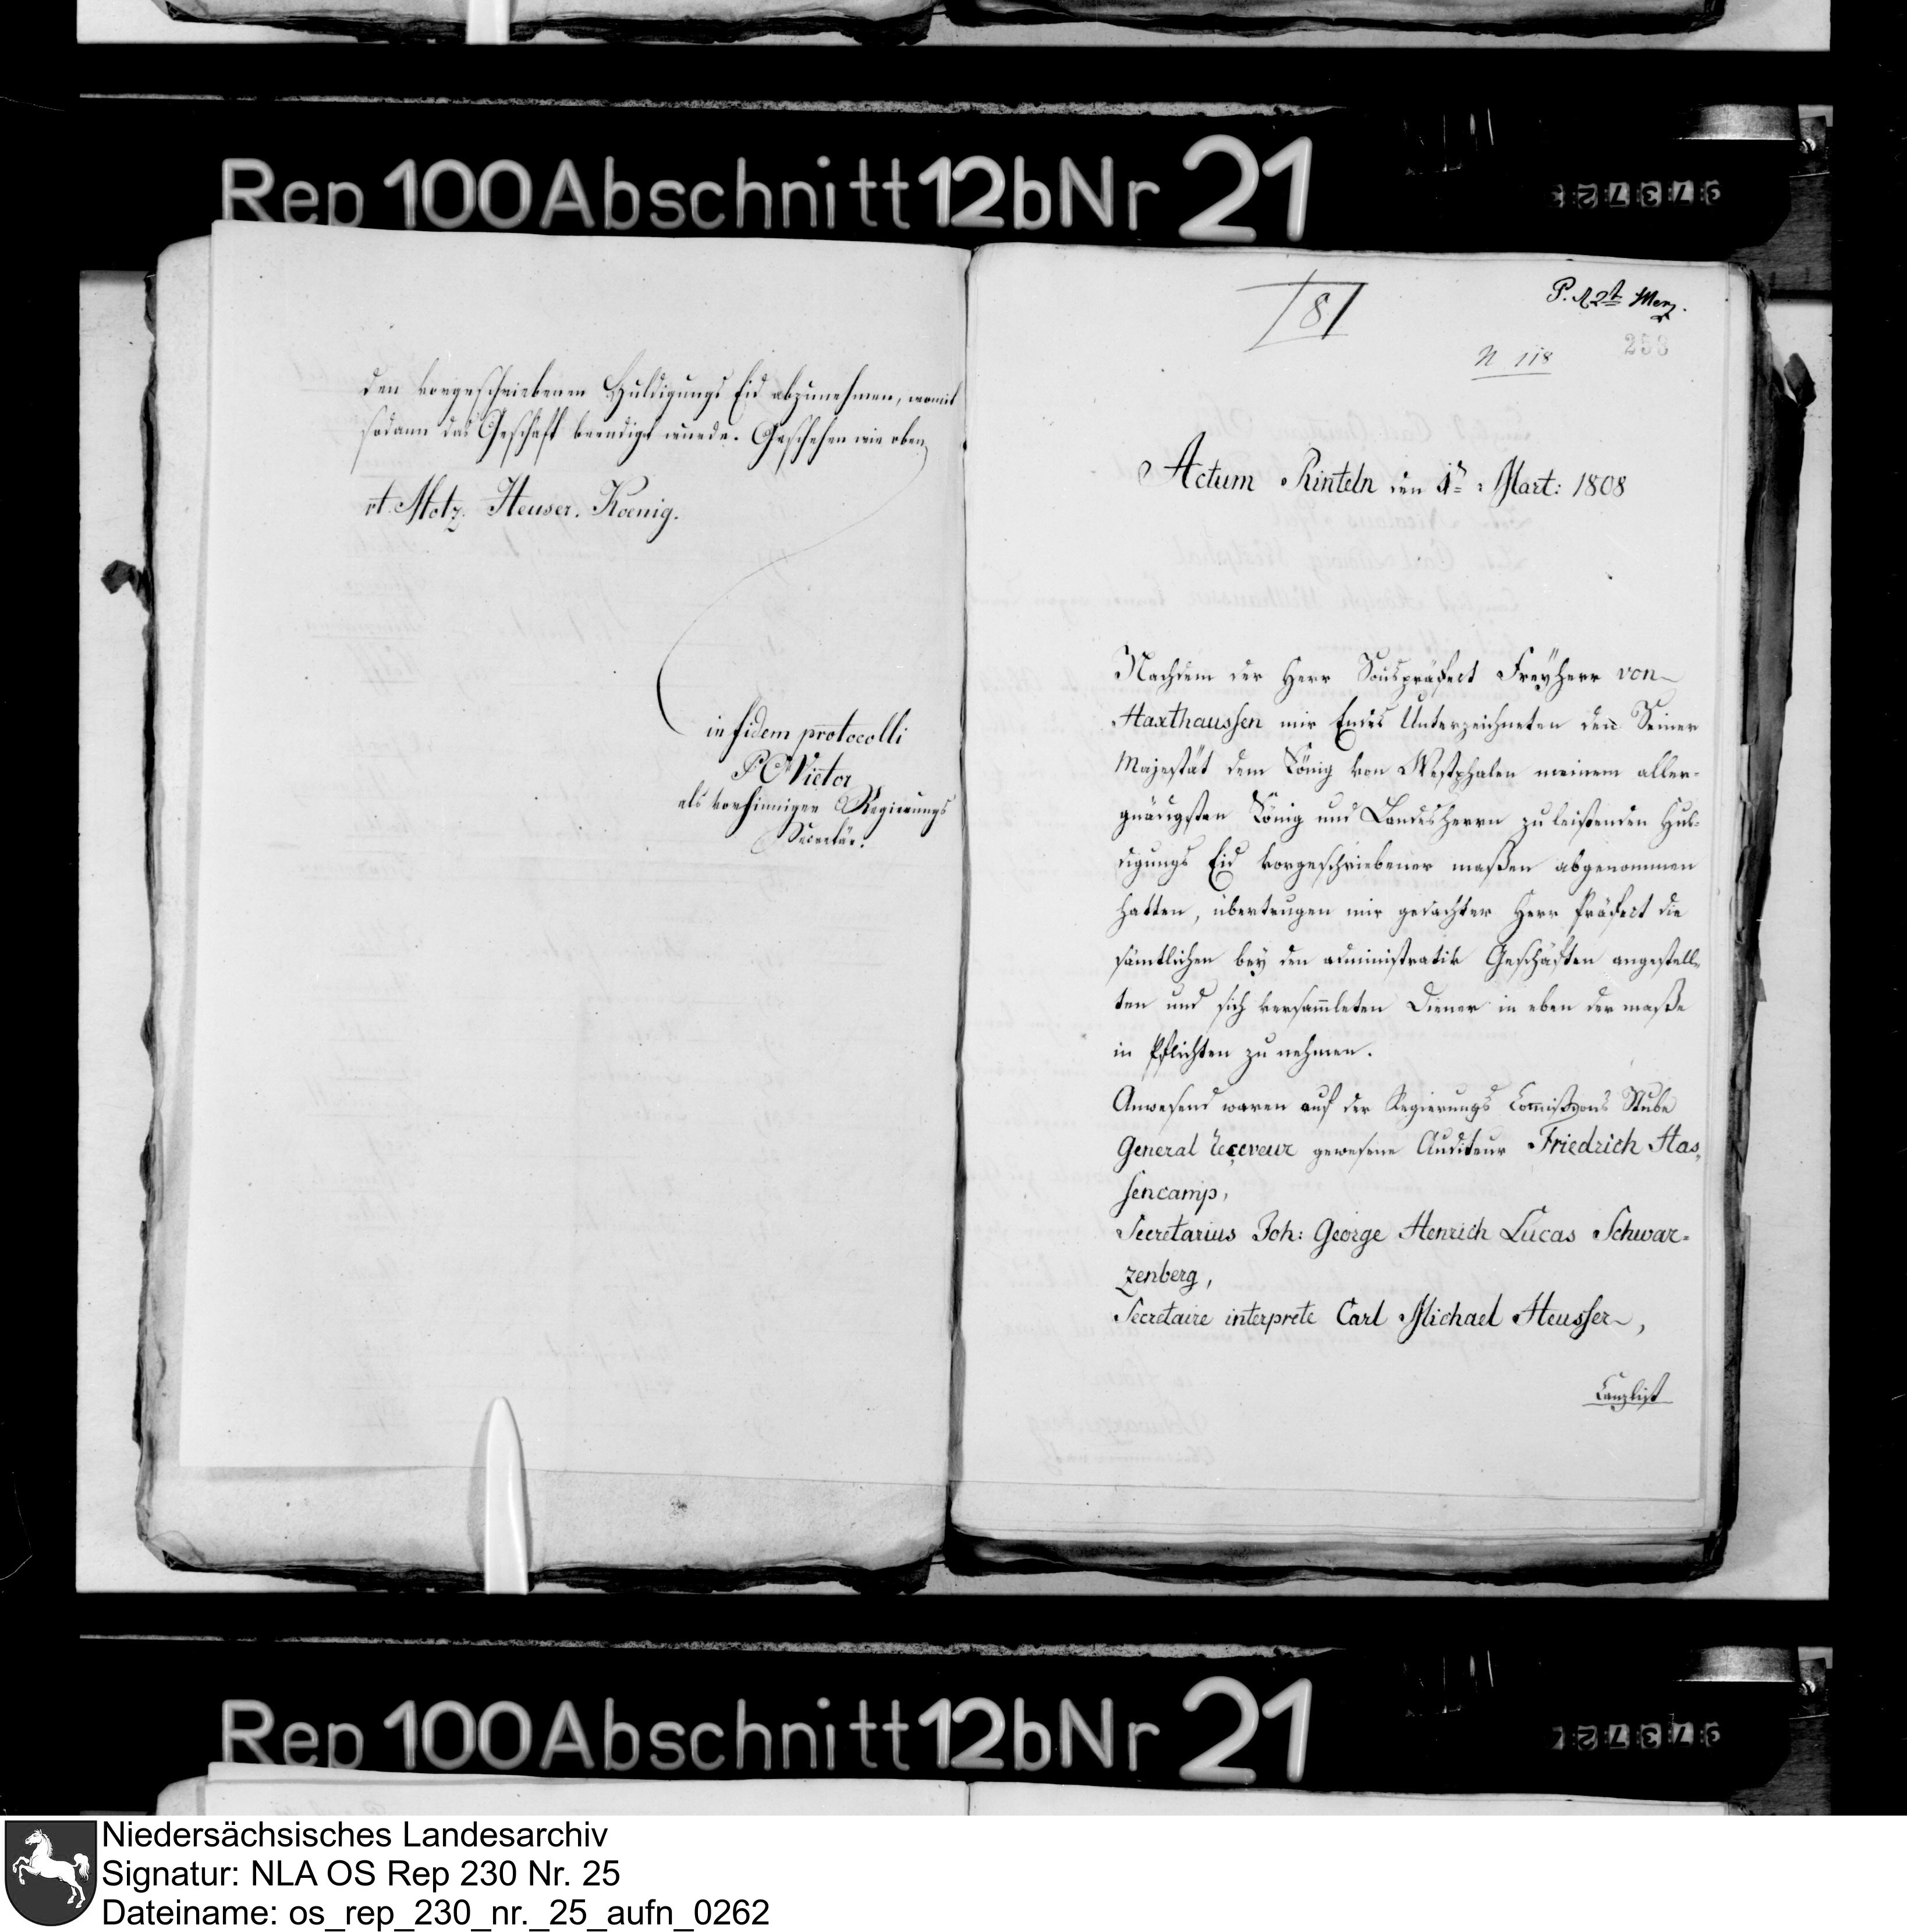 Rep 100 Abschnitt 12b Nr 21
den vorgeschriebenen Huldigungs Eid abzunehmen, womit
sodann das Geschäft beendigt wurde. Geschehen wie oben
Motz. Heuser. Koenig.
in fidem protocolli
Vietor
als vorhinniger Regierungs
Secretär.
8
P. 2t Merz.
N 118
253
Actum Rinteln den 1n Mart: 1808
Nachdem der Herr Souspräfect Freÿherr von
Haxthaussen mir Endes Unterzeichneten den Seiner
Majestät dem König von Westphalen meinem aller-
gnädigsten König und Landesherrn zu leistenden Hul-
digungs Eid vorgeschriebener maßen abgenommen
hatten, übertrugen mir gedachter Herr Präfect die
sämtlichen bey den administrativ Geschäften angestell-
ten und sich versam̄leten Diener in eben der maße
in Pflichten zu nehmen.
Anwesend waren auf der Regierungs Com̄ißions Stube
General Receveur gewesene Auditeur Friedrich Has-
sencamp,
Secretarius Joh: George Henrich Lucas Schwar-
zenberg,
Secretaire interprete Carl Michael Heusser,
Canzlist
Rep 100 Abschnitt 12b Nr 21
Niedersächsisches Landesarchiv
Signatur: NLA OS Rep 230 Nr. 25
Dateiname: os_rep_230_nr._25_aufn_0262